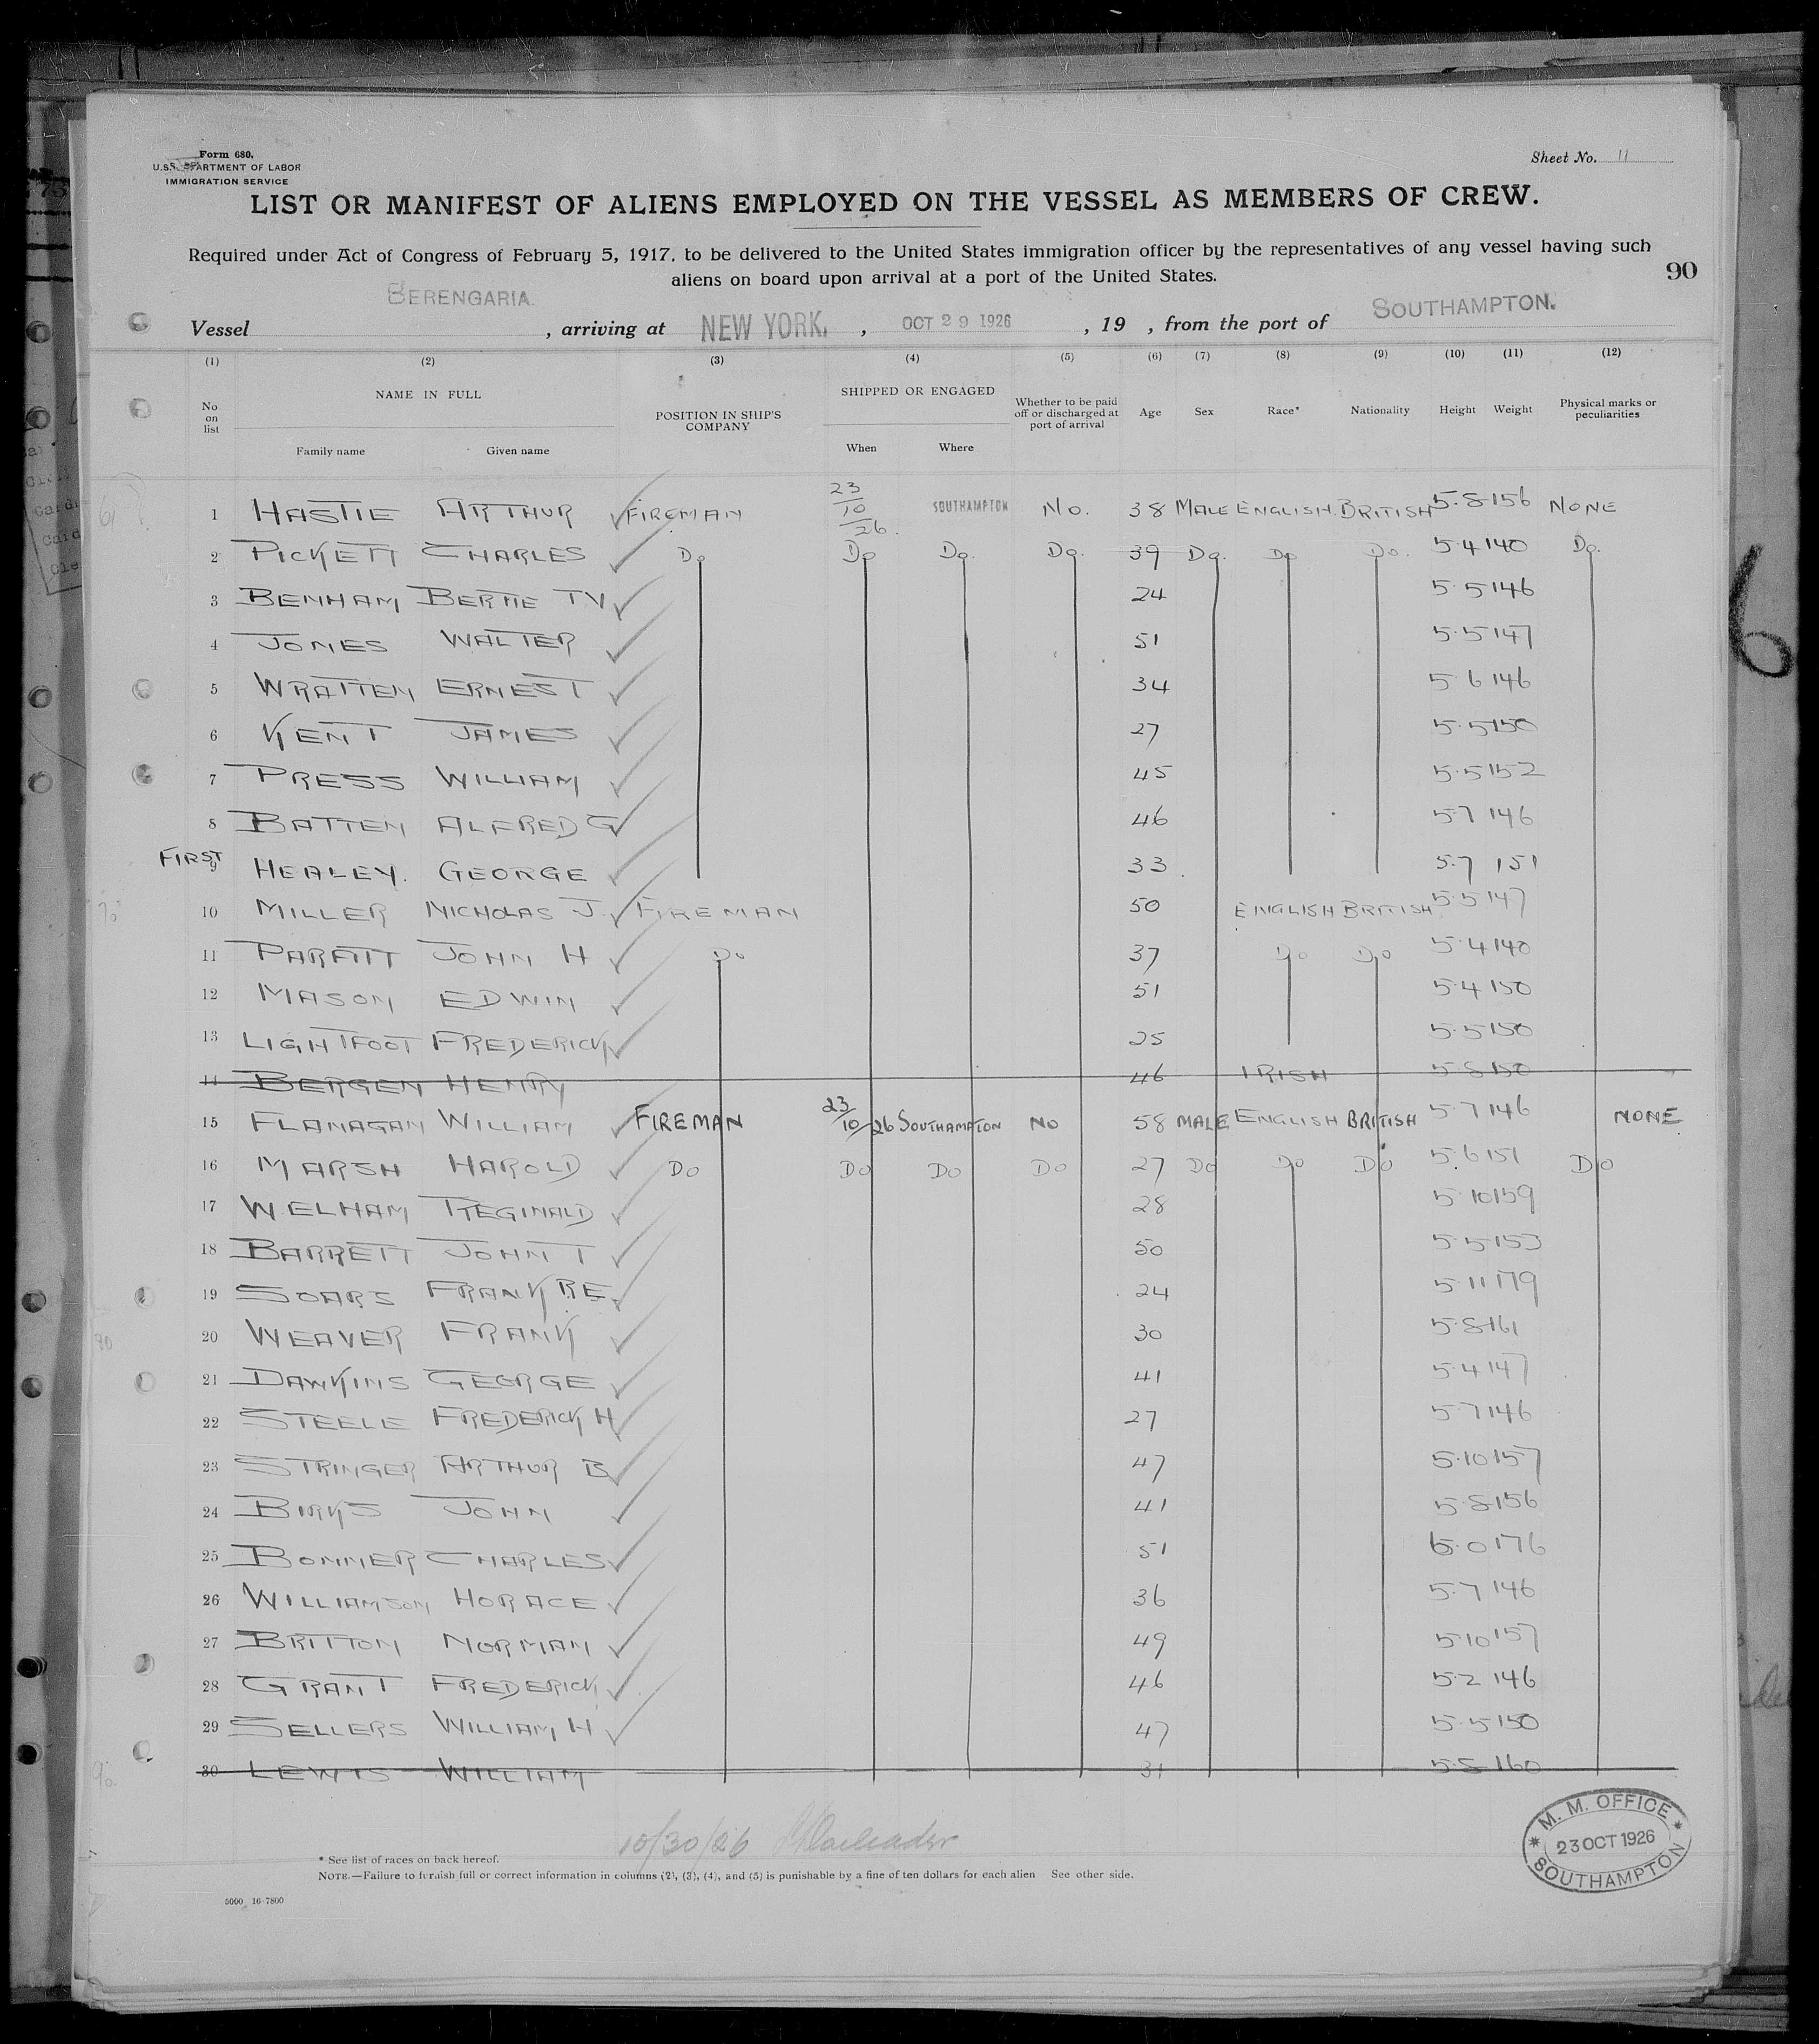 Form 680.
U.S. DEPARTMENT OF LABOR
IMMIGRATION SERVICE
Sheet No. 11
LIST OR MANIFEST OF ALIENS EMPLOYED ON THE VESSEL AS MEMBERS OF CREW.
Required under Act of Congress of February 5, 1917, to be delivered to the United States immigration officer by the representatives of any vessel having such
aliens on board upon arrival at a port of the United States.
90
Vessel BERENGARIA. , arriving at NEW YORK, , OCT 29 1926 , 19 , from the port of SOUTHAMPTON.
(1) (2) (3) (4) (5) (6) (7) (8) (9) (10) (11) (12)
No on list NAME IN FULL Family name Given name POSITION IN SHIP'S COMPANY SHIPPED OR ENGAGED When Where Whether to be paid off or discharged at port of arrival Age Sex Race* Nationality Height Weight Physical marks or peculiarities
1 HASTIE ARTHUR FIREMAN 23/10/26. SOUTHAMPTON No. 38 MALE ENGLISH BRITISH 5.8 156 NONE
2 PICKETT CHARLES Do Do Do. Do. 39 Do. Do Do. 5.4 140 Do.
3 BENHAM BERTIE TV 24 5.5 146
4 JONES WALTER 51 5.5 147
5 WRATTEN ERNEST 34 5 6 146
6 KENT JAMES 27 5.5 150
7 PRESS WILLIAM 45 5.5 152
8 BATTEN ALFRED G 46 5.7 146
FIRST
9 HEALEY. GEORGE 33 5.7 151
10 MILLER NICHOLAS J. FIREMAN 50 ENGLISH BRITISH 5.5 147
11 PARFITT JOHN H Do 37 Do Do 5.4 140
12 MASON EDWIN 51 5.4 150
13 LIGHTFOOT FREDERICK 25 5.5 150
14 BERGEN HENRY 46 IRISH 5.8 150
15 FLANAGAN WILLIAM FIREMAN 23/10/26 SOUTHAMPTON NO 58 MALE ENGLISH BRITISH 5.7 146 NONE
16 MARSH HAROLD DO DO DO DO 27 DO DO DO 5.6 151 DO
17 WELHAM REGINALD 28 5.10 159
18 BARRETT JOHN T 50 5.5 153
19 SOARS FRANK R.E. 24 5.11 179
20 WEAVER FRANK 30 5.8 161
21 DAWKINS GEORGE 41 5.4 147
22 STEELE FREDERICK H 27 5.7 146
23 STRINGER ARTHUR B 47 5.10 157
24 BIRKS JOHN 41 5.8 156
25 BONNER CHARLES 51 6.0 176
26 WILLIAMSON HORACE 36 5.7 146
27 BRITTON NORMAN 49 5.10 157
28 GRANT FREDERICK 46 5.2 146
29 SELLERS WILLIAM H 47 5.5 150
30 LEWIS WILLIAM 31 5.8 160
10/30/26
* See list of races on back hereof.
NOTE.—Failure to furnish full or correct information in columns (2), (3), (4), and (5) is punishable by a fine of ten dollars for each alien See other side.
5000 16-7800
M. M. OFFICE
23 OCT 1926
SOUTHAMPTON
6